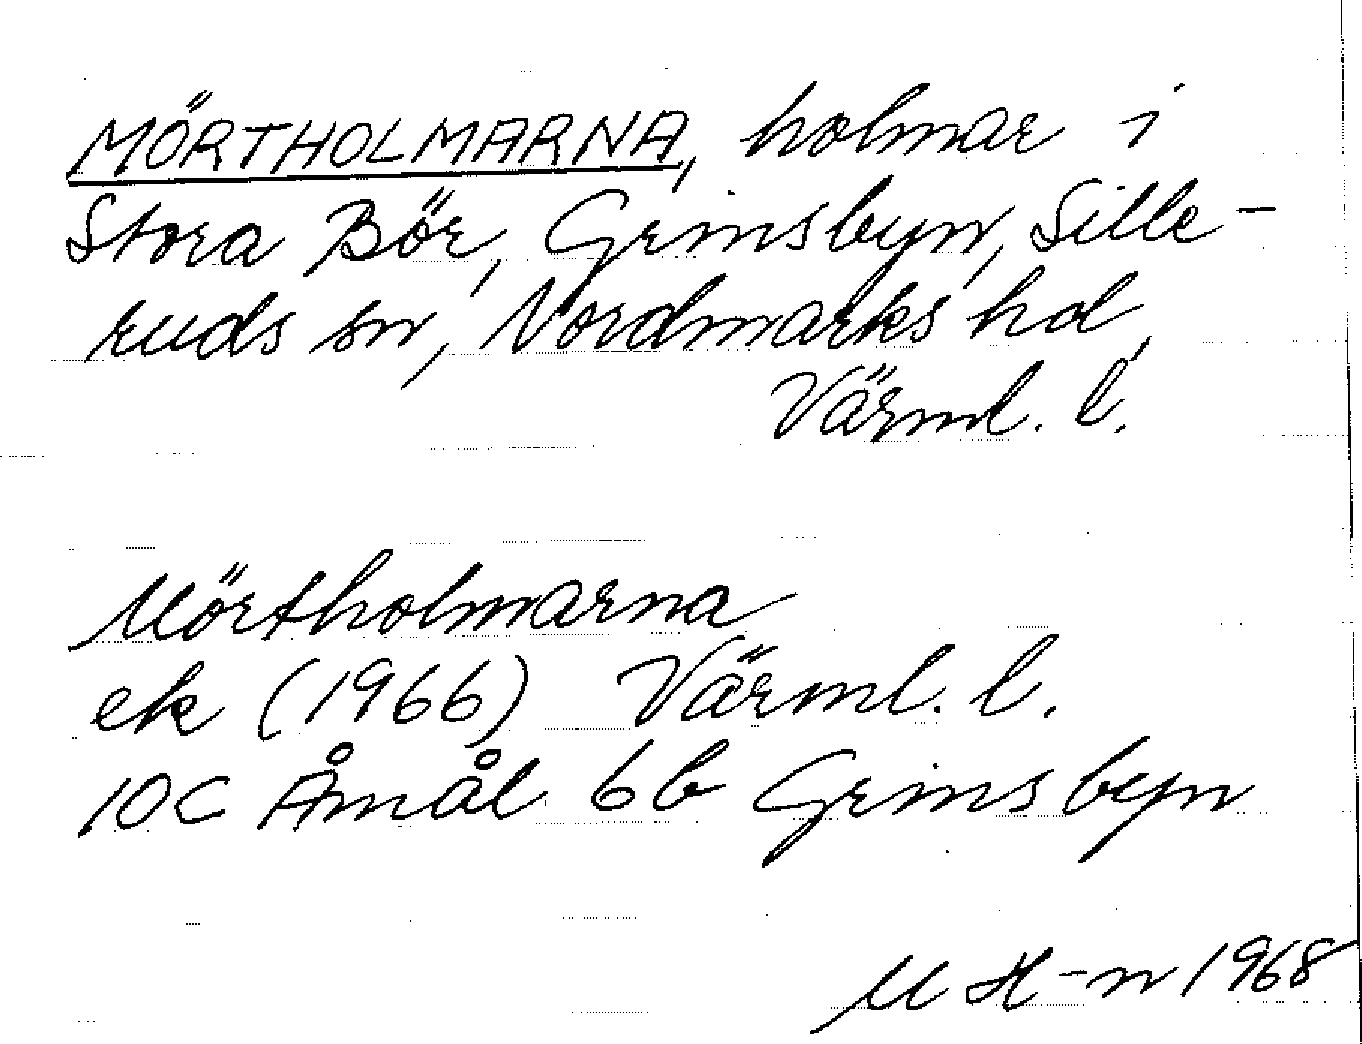 MÖRTHOLMARNA, holmar i
Stora Bör, Grinsbyn, Sille-
ruds sn, Nordmarks hd,
Värml. l.
Mörtholmarna
ek (1966) Värml. l.
10C Åmål 6b Grinsbyn
M H-n 1968